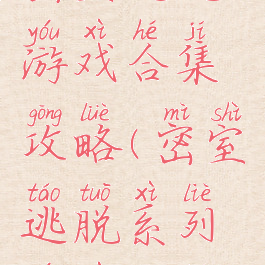 yóu xì hé jí
游戏合集
gōng lüè mì shì
攻略(密室
táo tuō xì liè
逃脱系列